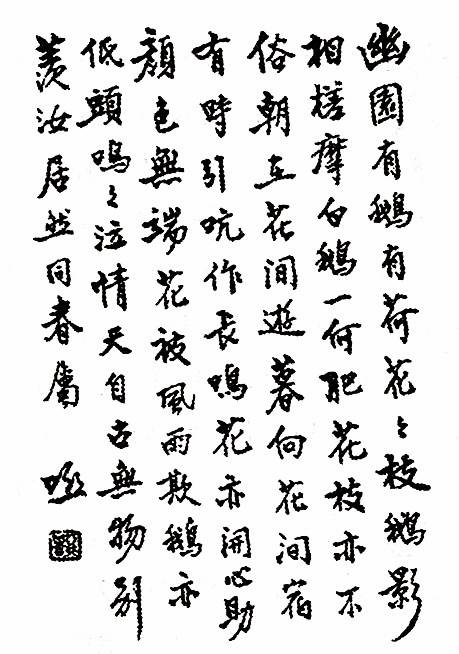 幽園有鵝有荷花々枝鵝影
相搓摩白鵝一何肥花枝亦不
俗朝在花间遊暮向花间宿
有時引吭作長鳴花亦開心助
顏色無端花被風雨欺鵝亦
低頭嗚々泣情天自古無物別
羨汝居然同眷屬